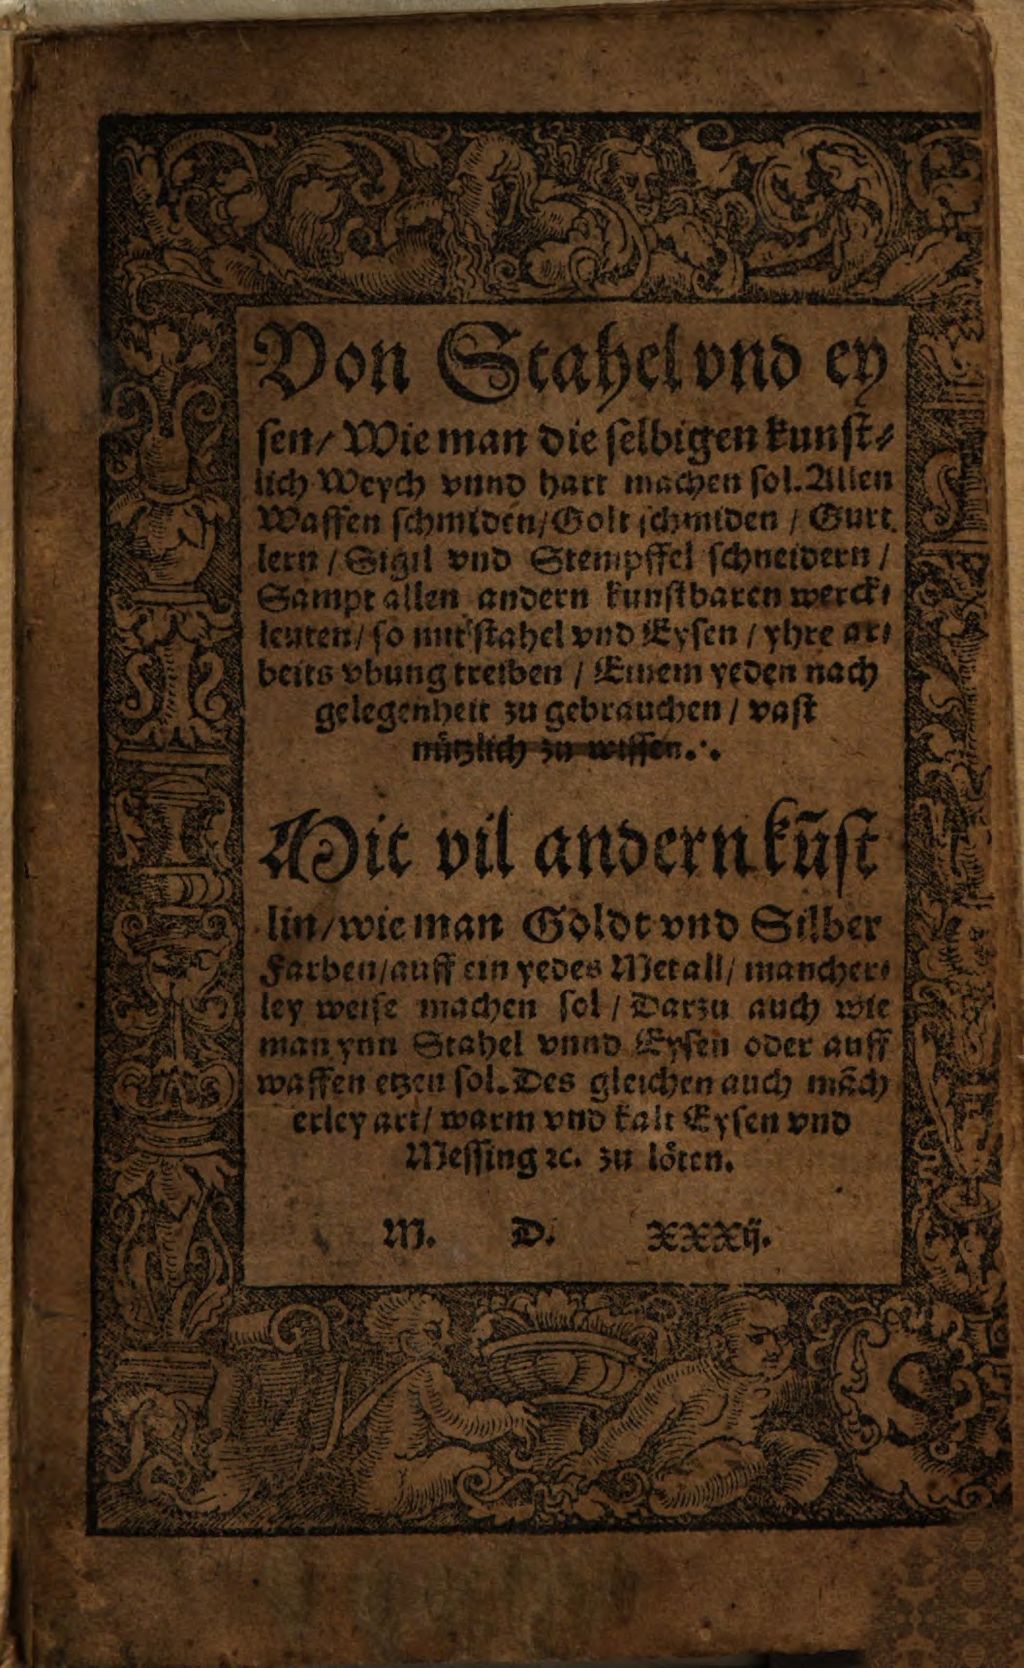 Von Stahel vnd ey
sen/ Wie man die selbigen kunst⸗
lich Weych vnnd hart machen sol. Allen
Waffen schmiden/ Golt schmiden / Gurt
lern / Sigil vnd Stempffel schneidern /
Sampt allen andern kunstbaren werck⸗
leuten/ so mit stahel vnd Eysen / yhre ar⸗
beits vbung treiben / Einem yeden nach
gelegenheit zu gebrauchen / vast
nützlich zu wissen.
Mit vil andern kūst
lin/ wie man Goldt vnd Silber
Farben/ auff ein yedes Metall/ mancher⸗
ley weise machen sol / Darzu auch wie
man ynn Stahel vnnd Eysen oder auff
waffen etzen sol. Des gleichen auch māch
erley art/ warm vnd kalt Eysen vnd
Messing ꝛc. zu löten.
M. D. XXXij.
S